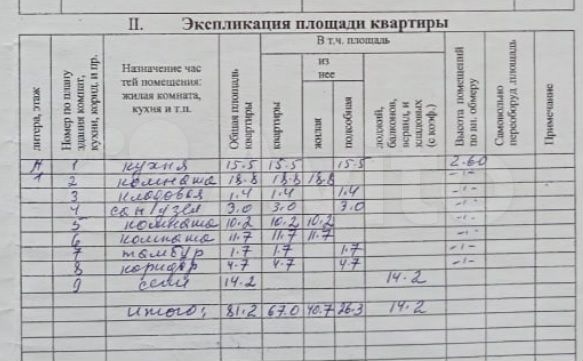 II. Экспликация площади квартиры
литера, этаж
Номер по плану здания комнат, кухни, корид. и пр.
Назначение час
тей помещения:
жилая комната,
кухня и т.п.
Общая площадь квартиры
В т.ч. площадь
квартиры
из
нее
жилая
подсобная
лоджий, балконов, веранд, и кладовых (с коэф.)
Высота помещений по вн. обмеру
Самовольно переоборуд площадь
Примечание
А 1 кухня 15.5 15.5 15.5 2.60
1 2 комната 18.8 18.8 18.8 -1-
3 кладовая 1.4 1.4 1.4 -1-
4 санузел 3.0 3.0 3.0 -1-
5 комната 10.2 10.2 10.2 -1-
6 комната 11.7 11.7 11.7 -1-
7 тамбур 1.7 1.7 1.7 -1-
8 коридор 4.7 4.7 4.7 -1-
9 сени 14.2 14.2
итого: 81.2 67.0 40.7 26.3 14.2